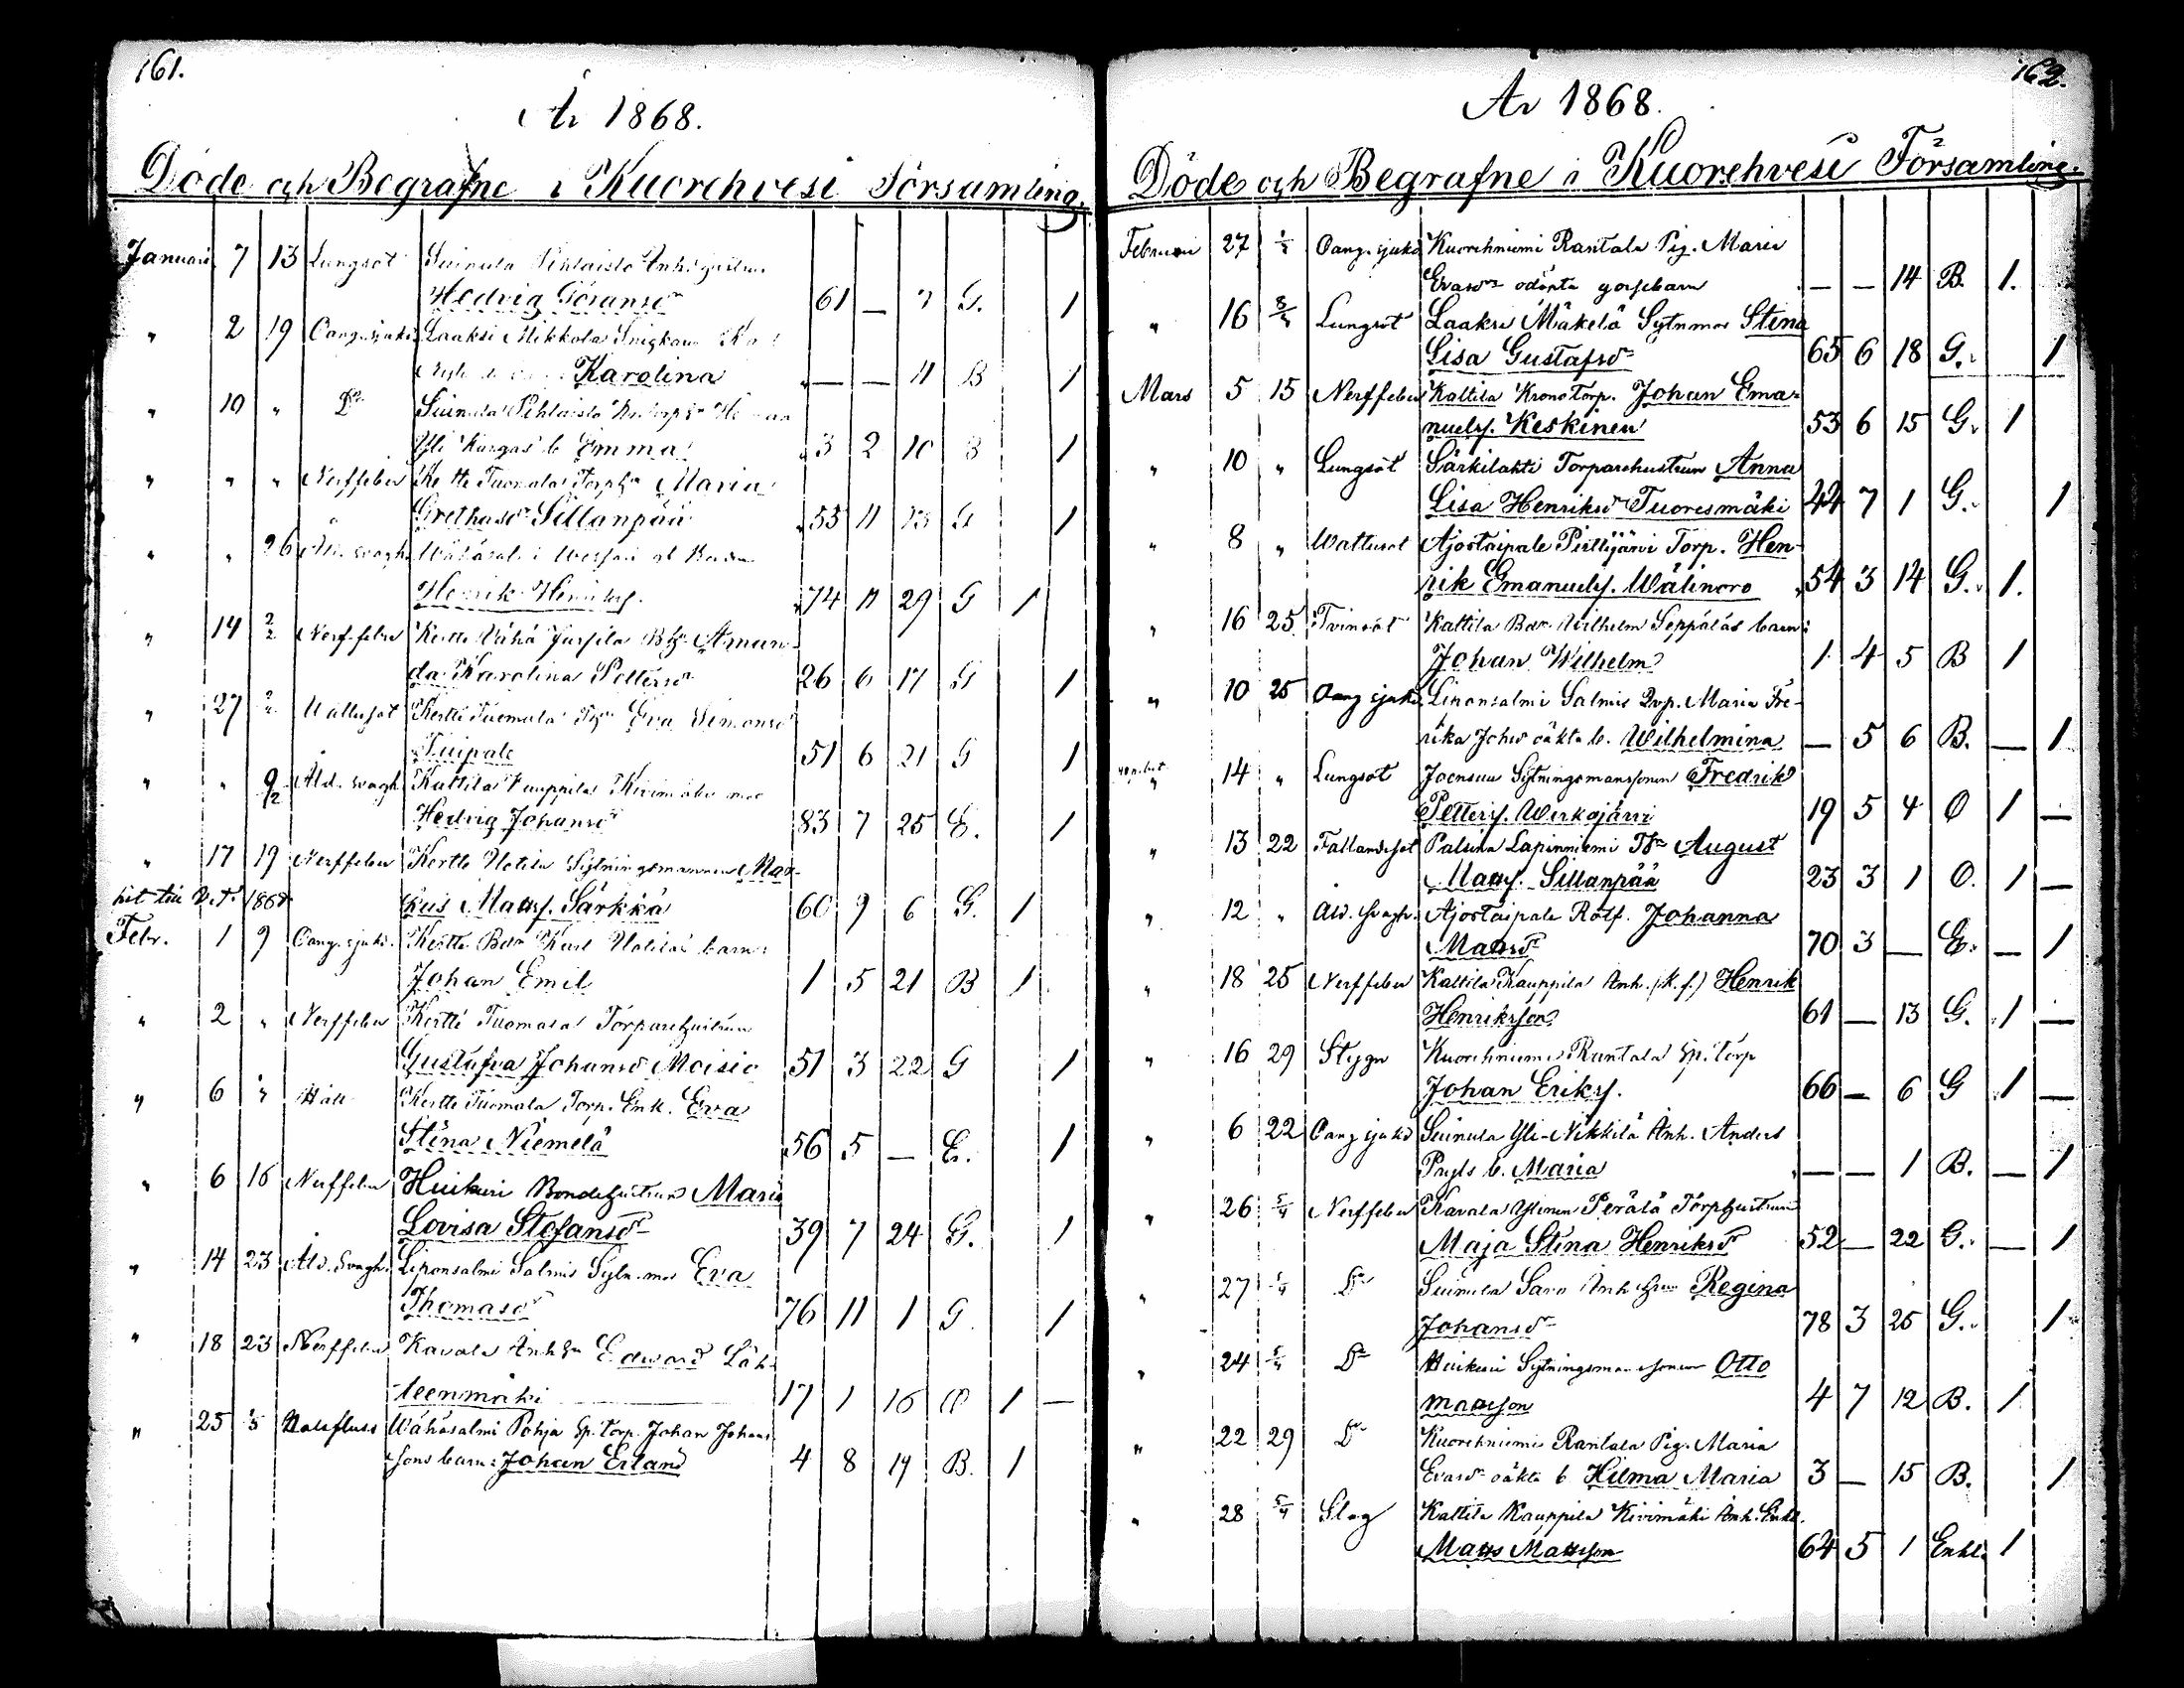 161.
År 1868.
Döde och Begrafne i Kuorehvesi Församling.
Januari 7 13 Lungsot Suinula Pihlaisto Inh. hustru
Hedvig Göransdr 61 — 7 G. 1
" 2 19 Oang. sjukd. Laaksi Mikkola
Karolina — — 11 B 1
" 10 " Do Suinula Pihlaisto
Yli Kangas b Emma 3 2 10 B 1
" " " Nerffeber Kertte Tuomala Torph. Maria
Grethasdr Sillanpää 55 11 23 G 1
" " 26 Åld. svagh.
Henrik Henriks. 74 11 29 G 1
" 14 2/2 Nerffeber Kertte Vähä Jussila Aman-
da Karolina Pettersdr 26 6 17 G 1
" 27 2/2 Wattusot Kertte Tuomala Eva Simonsdr
Taipale 51 6 21 G 1
" " 9/2 Åld. svagh Kattila Kauppila Kivimäki mor
Hedvig Johansdr 83 7 25 E. 1
" 17 19 Nerffeber Kertte Uotila Sytningsmannen Mar-
kus Matts. Särkkä 60 9 6 G. 1
hit till V.T. 1868
Febr. 1 9 Oang. sjukd. Kertte Bdn Karl Uotilas barn:
Johan Emil 1 5 21 B 1
" 2 " Nerffeber Kertte Tuomala Torparehustrun
Gustafva Johansdr Moisio 51 3 22 G 1
" 6 Håll Kertte Tuomala Torp. Enk. Eva
Stina Niemelä 56 5 — E. 1
" 6 16 Nerffeber Huikuri Bondehustrun Maria
Lovisa Stefansdr 39 7 24 G. 1
" 14 23 Åld. Svagh. Liponsalmi Salmis Sytn. mor Eva
Thomasdr 76 11 1 G 1
" 18 23 Nerffeber Kavala Edvard Läh-
teenmäki 17 1 16 O 1 —
" 25 1/3 Halsfluss Wähäsalmi Pohja Sp. torp. Johan Johans
sons barn: Johan Erland 4 8 19 B. 1
162.
År 1868.
Döde och Begrafne i Kuorehvesi Församling.
Februari 27 Oang. sjukd Kuorehniemi Rantala Pig. Maria
Evasdr odöpta gossebarn — — 14 B. 1.
" 16 8/3 Lungsot Laaksi Mäkelä Sytn mor Stina
Lisa Gustafsdr 65 6 18 G. 1
Mars 5 15 Nerffeber Kattila Krono Torp. Johan Ema-
nuels. Keskinen 53 6 15 G. 1
" 10 " Lungsot Särkilahti Torparehustrun Anna
Lisa Henriksdr Tuoresmäki 44 7 1 G. 1
" 8 " Wattusot Ajostaipale Pirttijärvi Torp. Hen-
rik Emanuels. Wälinoro 54 3 14 G. 1.
" 16 25 Tvinsot Kattila Bdn Wilhelm Seppäläs barn:
Johan Wilhelm 1 4 5 B 1
" 10 25 Oang sjukd. Liponsalmi Salmis Maria Fre-
rika Johsd oäkta b. Wilhelmina — 5 6 B. — 1
" 14 " Lungsot Joensuu Sytningsmanssonen Fredrik
Petters. Werkajärvi 19 5 4 O 1 —
" 13 22 Fallandesot Palsina Lapinniemi August
Matts. Sillanpää 23 3 1 O. 1 —
" 12 " Åld. svagh. Ajostaipale Rotf. Johanna
Mattsdr 70 3 — E. — 1
" 18 25 Nerffeber Kattila Kauppila Inh. (k.f.) Henrik
Henriksson 61 — 13 G. 1 —
" 16 29 Stygn Kuorehniemi Rantala Sp. Torp
Johan Eriks. 66 — 6 G 1 —
" 6 22 Oang sjukd Suinula Yli-Nikkilä Inh. Anders
b. Maria — — 1 B. — 1
" 26 5/4 Nerffeber Kavala Ylinen Perälä Torphustrun
Maja Stina Henriksdr 52 — 22 G. — 1
" 27 5/4 Do Suinula Saro Inh Regina
Johansdr 78 3 25 G. 1
" 24 5/4 Do Huikuri Sytningsmanssonen Otto
Mattsson 4 7 12 B. 1
" 22 29 Do Kuorehniemi Rantala Pig. Maria
Evasdr oäkta b Hilma Maria 3 — 15 B. 1
" 28 5/4 Slag Kattila Kauppila Kivimäki Inh. Enkl.
Matts Mattsson 64 5 1 Enkl. 1